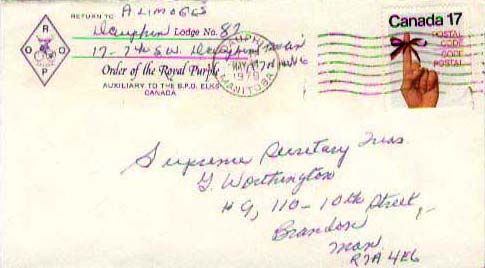 RETURN TO A. LIMOGES
Dauphin Lodge No. 82
17-7th S.W. Dauphin Man
Order of the Royal Purple
AUXILIARY TO THE B.P.O. ELKS
CANADA
O R O P
DAUPHIN
MAY
1979
MANITOBA
Canada 17
POSTAL
CODE
CODE
POSTAL
Supreme Secretary Treas.
G. Worthington
#9, 110-10th Street,
Brandon
Man.
R7A 4E6